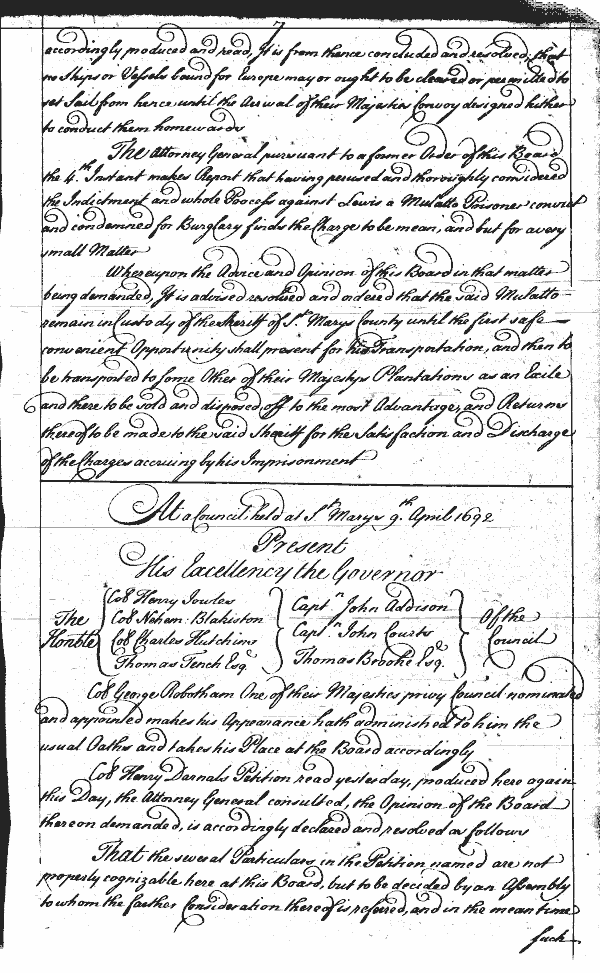 7
accordingly produced and read, It is from thence concluded and resolved; that
no Ships or Vessels bound for Europe may or ought to be cleared or permitted to
set Sail from hence until the Arival of their Majesties Convoy designed hither
to conduct them homewards
The Attorney General pursuant to a former Order of this Board
the 4th Instant makes Report that having perused and thoroughly considered
the Indictment and whole Process against Lewis a Mulatto Prisoner convict
and condemned for Burglary finds the Charge to be mean, and but for a very
small Matter
Whereupon the Advice and Opinion of this Board in that matter
being demanded, It is advised resolved and ordered that the said Mulatto
remain in Custody of the Sheriff of St Marys County until the first safe
convenient Opportunity shall present for his Transportation, and then to
be transported to some Other of their Majestys Plantations as an Exile
and there to be sold and disposed off to the most Advantage, and Returns
thereof to be made to the said Sheriff for the Satisfaction and Discharge
of the Charges accruing by his Imprisonment
At a Council held at St Marys 9th April 1692
Present
His Excellency the Governor
The Honble
Col Henry Jowles
Col Nehem: Blakiston
Col Charles Hutchins
Thomas Tench Esqr
Captn John Addison
Captn John Courts
Thomas Brooke Esqr
Of the Council
Col George Robotham One of their Majesties privy Council nominated
and appointed makes his Appearance hath administred to him the
usual Oaths and takes his Place at the Board accordingly
Col Henry Darnals Petition read yesterday, produced here again
this Day, the Attorney General consulted, the Opinion of the Board
thereon demanded, is accordingly declared and resolved as follows
That the several Particulars in the Petition named are not
properly cognizable here at this Board, but to be decided by an Assembly
to whom the farther Consideration thereof is refered, and in the mean time
such